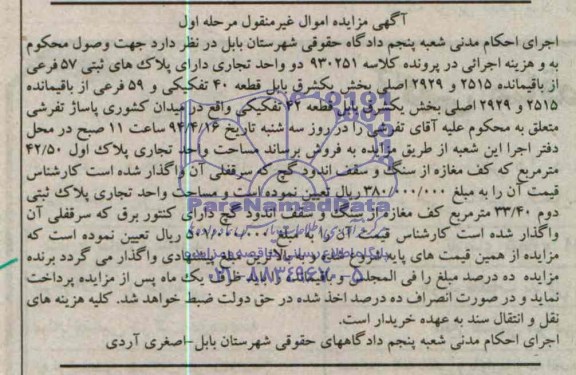 آگهی مزایده اموال غیرمنقول مرحله اول
اجرای احکام مدنی شعبه پنجم دادگاه حقوقی شهرستان بابل در نظر دارد جهت وصول محکوم
به و هزینه اجرائی در پرونده کلاسه ۹۳۰۲۵۱ دو واحد تجاری دارای پلاک های ثبتی ۵۷ فرعی
از باقیمانده ۲۵۱۵ و ۲۹۲۹ اصلی بخش یکشرق بابل قطعه ۴۰ تفکیکی و ۵۹ فرعی از باقیمانده
۲۵۱۵ و ۲۹۲۹ اصلی بخش یکشرق بابل قطعه ۴۲ تفکیکی واقع در میدان کشوری پاساژ تفرشی
متعلق به محکوم علیه آقای تفرشی را در روز سه شنبه تاریخ ۹۴/۴/۱۶ ساعت ۱۱ صبح در محل
دفتر اجرا این شعبه از طریق مزایده به فروش برساند مساحت واحد تجاری پلاک اول ۴۲/۵۰
مترمربع که کف مغازه از سنگ و سقف اندود گچ که سرقفلی آن واگذار شده است کارشناس
قیمت آن را به مبلغ ۳۸۰/۰۰۰/۰۰۰ ریال تعیین نموده است و مساحت واحد تجاری پلاک ثبتی
دوم ۳۳/۴۰ مترمربع کف مغازه از سنگ و سقف اندود گچ دارای کنتور برق که سرقفلی آن
واگذار شده است کارشناس قیمت آن را به مبلغ ریال تعیین نموده است که
مزایده از همین قیمت های پایه شروع و به بالاترین قیمت پیشنهادی واگذار می گردد برنده
مزایده ده درصد مبلغ را فی المجلس و مابقی را باید ظرف یک ماه پس از مزایده پرداخت
نماید و در صورت انصراف ده درصد اخذ شده در حق دولت ضبط خواهد شد. کلیه هزینه های
نقل و انتقال سند به عهده خریدار است.
اجرای احکام مدنی شعبه پنجم دادگاههای حقوقی شهرستان بابل-اصغری آردی
ParsNamadData
۰۲۱-۸۸۳۴۹۶۷۰-۵